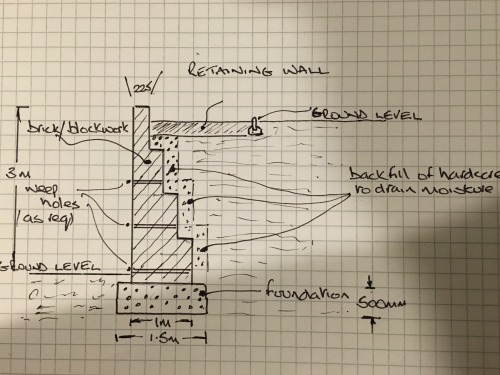 RETAINING WALL
225
GROUND LEVEL
brick/blockwork
3M
weep
holes
(as req)
backfill of hardcore
to drain moisture
GROUND LEVEL
foundation
500mm
1m
1.5m